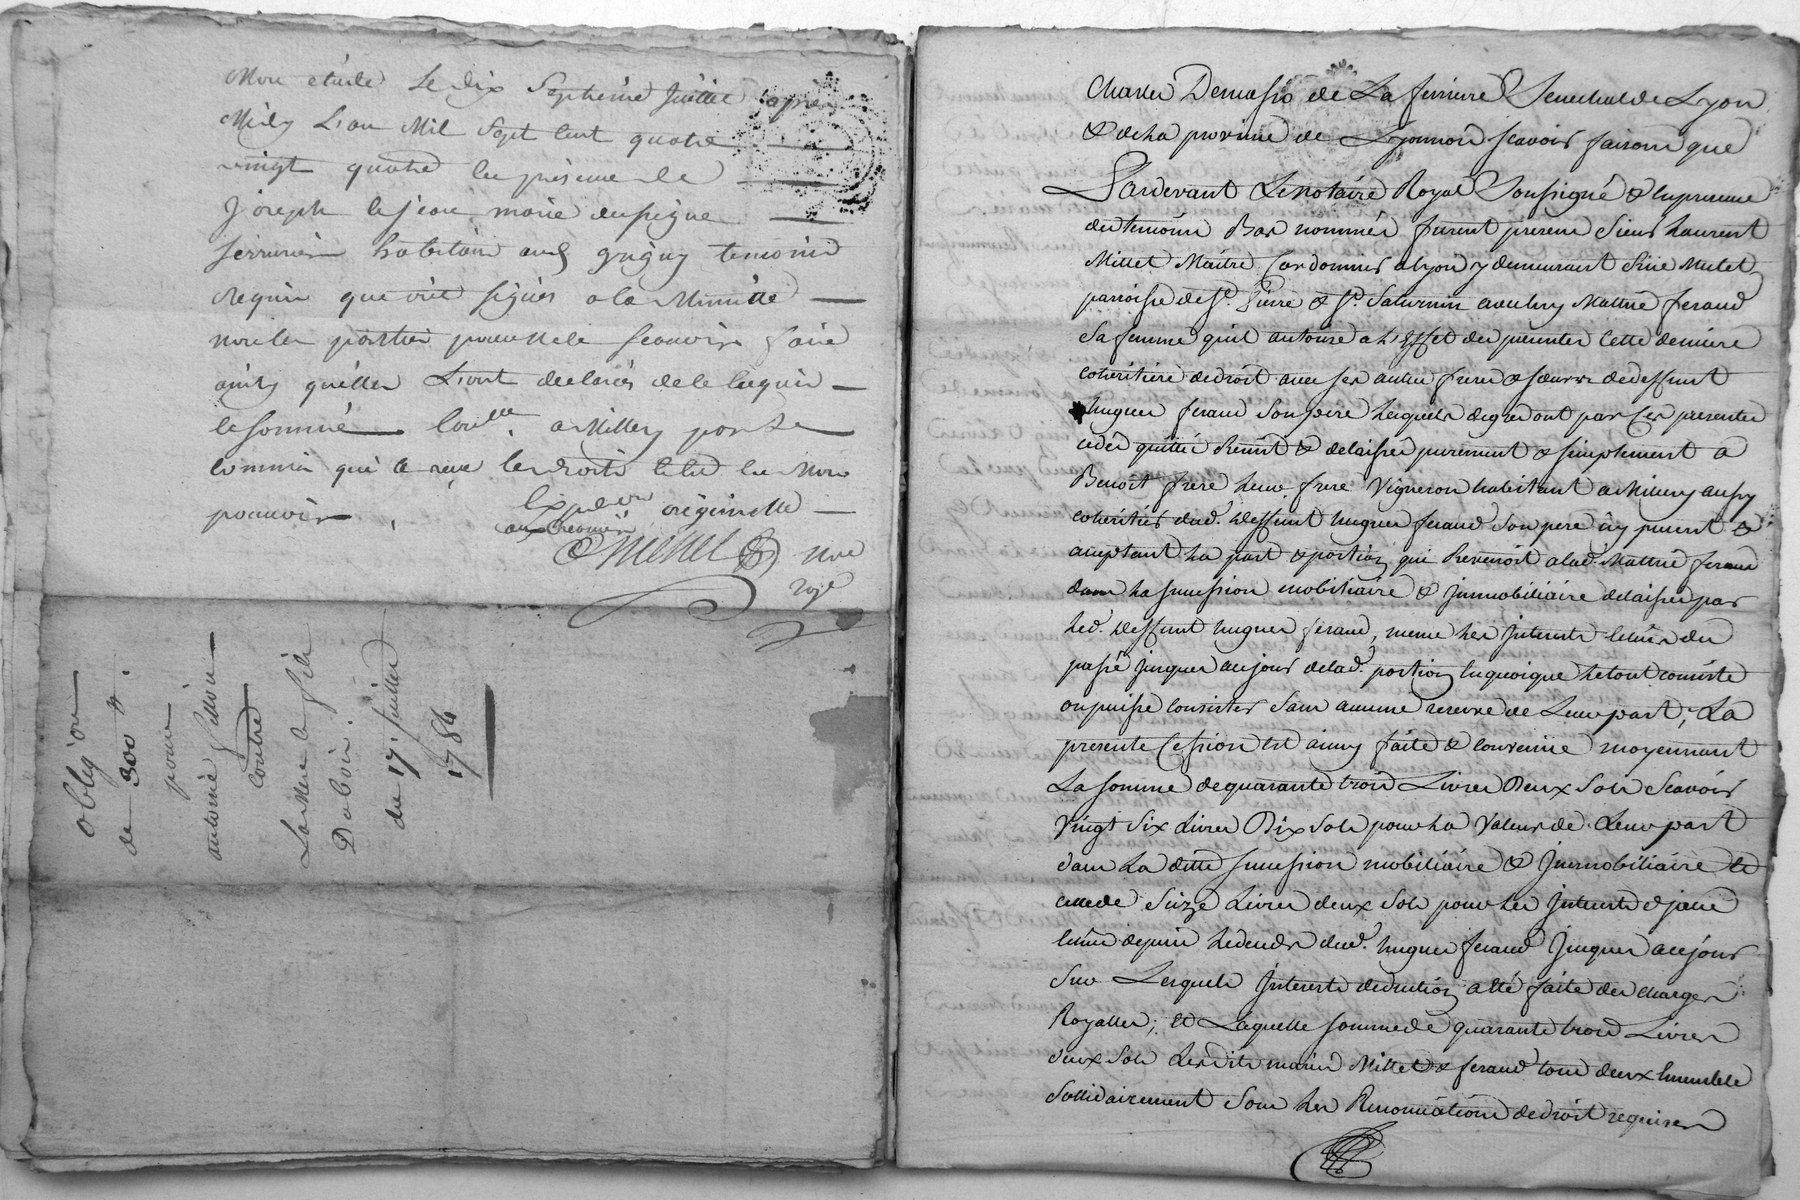 Mon etude le dix septieme juillet apres
Midy L'an Mil Sept Cent quatre
vingt quatre en presence de
Joseph et jean marie
serrurier habitans aud grigny temoins
requis que ont signés a la Minutte
non les parties pour ne le scavoir faire
ainsy quelles L'ont declarés de ce enquis
et sommé a Millery par le
commis qui a reçu les droits
pouvoir
Expd.on originelle
nore
royal
obligaon
de 300 #
pour
antoine
contre
La mere & fils
Dubois
du 17 juillet
1784
Charles Demasso de La ferriere Senechal de Lyon
& de la province de Lyonnois scavoir faisons que
Pardevant Le notaire Royal Soussigné & en presence
des temoins Bas nommés furent presens Sieur Laurent
Millet Maitre Cordonnier a lyon y demeurant rüe Mulet
parroisse de St. Pierre & St. Saturnin avec luy Mattie feraud
Sa femme qu'il autorise a L'Effet des presentes Cette derniere
coheritiere de droit avec ses autres freres & soeurs de deffunt
hugues feraud Son pere lesquels de gré ont par Ces presentes
cedé quitté Remis & delaissé purement & simplement a
Benoit frere leur frere Vigneron habitant a Millery aussy
coheritier dud. deffunt hugues feraud Son pere icy present &
acceptant La part & portion qui Revenoit a lad. Mattie feraud
dans La succession mobiliaire & Immobiliaire delaissée par
Led. deffunt hugues feraud, meme Les Interests du
passé jusques au jour de lad. portion en quoique Le tout consiste
ou puisse Consister Sans aucune reserve de Leur part, La
presente Cession est ainsy faite & convenüe moyennant
La Somme de quarante trois Livres Deux Sols Scavoir
Vingt Six Livres Dix Sols pour La Valeur de Leur part
dans La ditte succession mobiliaire & Immobiliaire et
celle de Seize Livres deux Sols pour Les Interests d'jcelle
depuis Le deceds dud. hugues feraud jusques a ce jour
Sur Lesquels Interests deduction a été faite des charges
Royalles; et Laquelle somme de quarante trois Livres
deux Sols Lesdits mariés Millet & feraud tous deux Ensemble
Sollidairement Sous Les Renonciations de droit requises